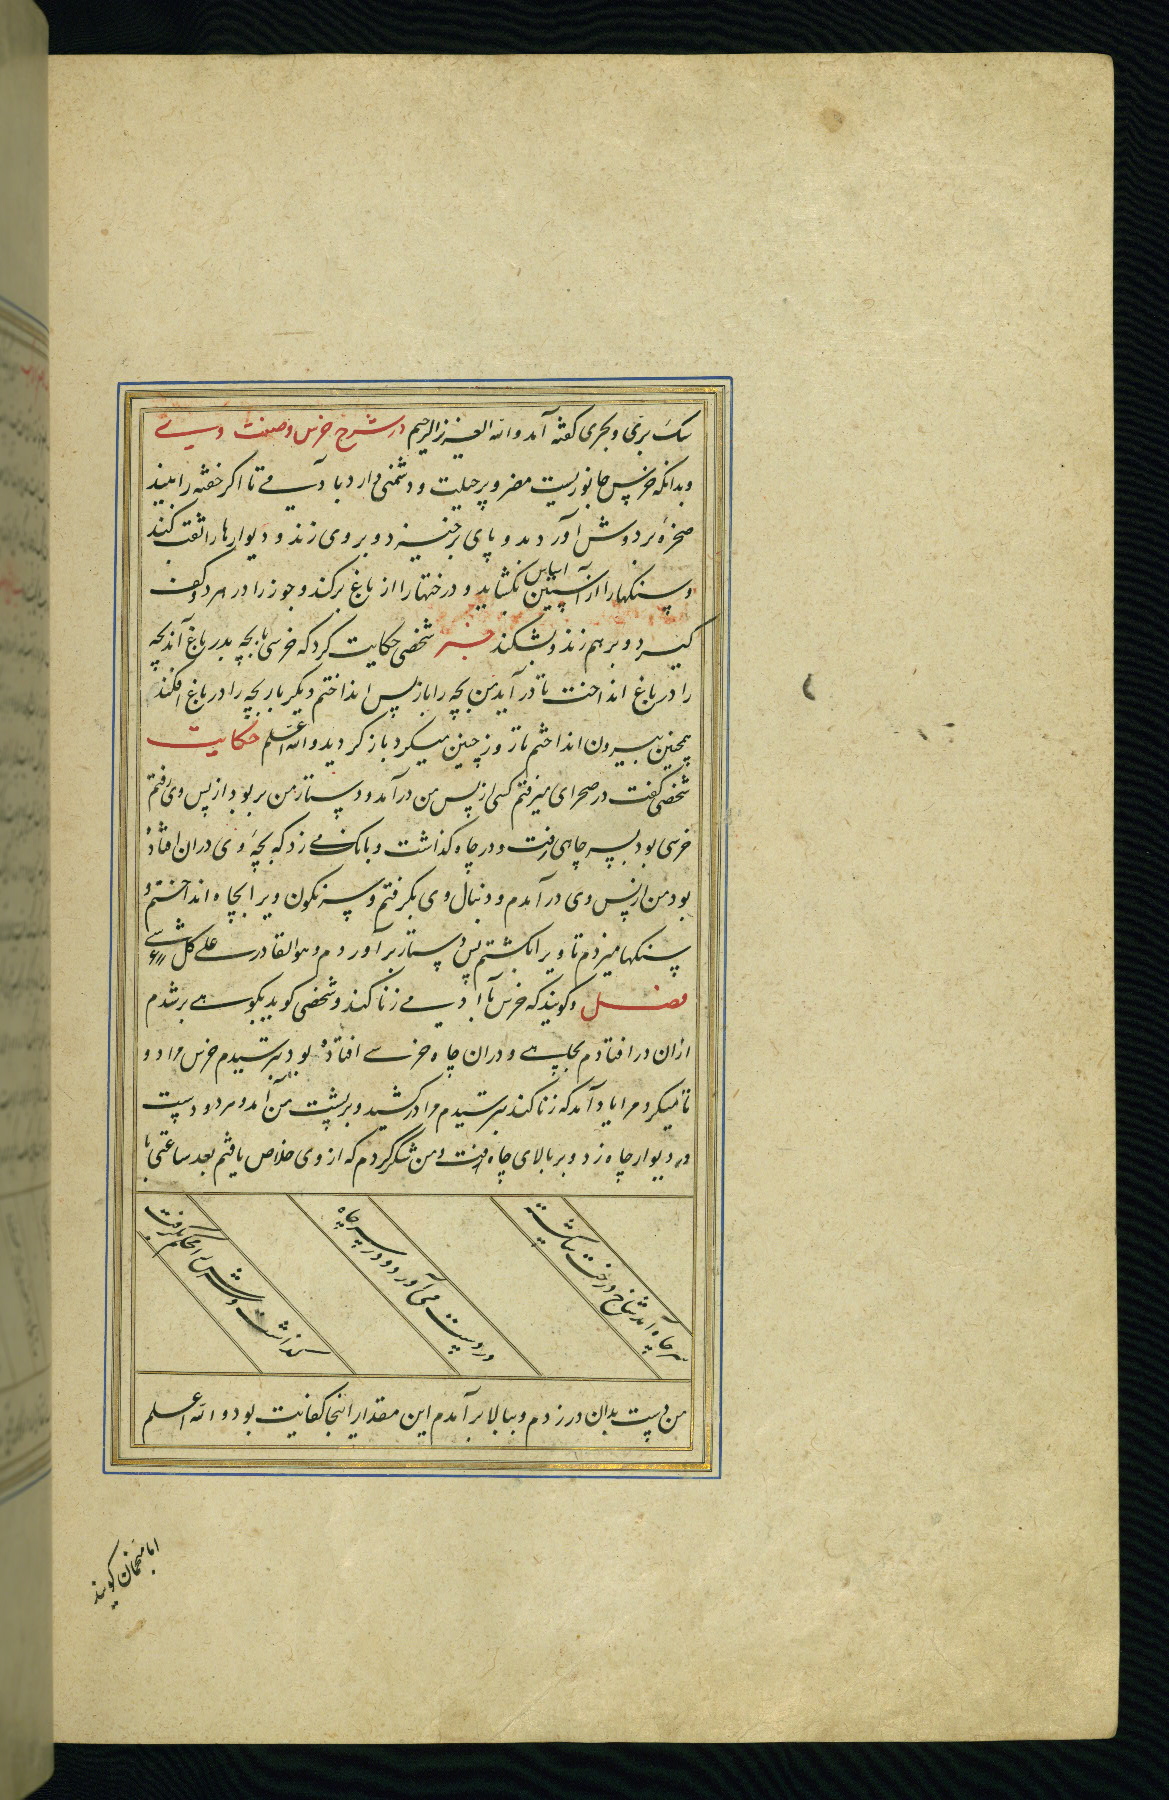 سگ بری و بحری کفته آمد والله العزیز الرحیم در شرح خرس و صفت وی
وبدانکه خرس جانوریست مضر و پر حیلت و دشمنی دارد با آدمی تا اکر خفته را بیند
صخرهٔ بر دوش آورد و پای برخیزد و بر وی زند و دیوارها را ثقب کند
و سنکها را از آستین اساس بکشاید و درختها را از باغ برکند و جوز را در هر دو کف
کیرد و بر هم زند و بشکند خبر شخصی حکایت کرد که خرسی با بچه بدر باغ آمد بچه
را در باغ انداخت تا در آید من بچه را باز پس انداختم دیکر بار بچه را در باغ افکند
همچنین بیرون انداختم تا روز چنین میکرد باز کردید والله اعلم حکایت
شخصی کفت در صحرای میرفتم کسی از پس من درآمد و دستار من بربود از پس وی رفتم
خرسی بود بسر چاهی رفت و در چاه کذاشت و بانک می زد که بچهٔ وی دران افتاده
بود من از پس وی در آمدم و دنبال وی بکرفتم و سرنکون ویرا بچاه انداختم و
سنکها میزدم تا ویرا بکشتم پس دستار برآوردم وهو القادر علی کل شیء
فصل وکویند که خرس با آدمی زنا کند و شخصی کوید بکوهی برشدم
ازان در افتادم بچاهی و دران چاه خرسی افتاده بود بترسیدم خرس مرا دو
تا میکرد مرا یاد آمد که زنا کند بترسیدم مرا درکشید و بر پشت من آمد و هر دو دست
در دیوار چاه زد و بر بالای چاه رفت و من شکر کردم که از وی خلاص یافتم بعد ساعتی با
سر چاه آمد شاخ درخت شکسته
در دست می آورد و در سر چاه
کذاشت و سرش را محکم بکرفت
من دست بدان در زدم و ببالا برآمدم این مقدار اینجا کفایت بود والله اعلم
کویند